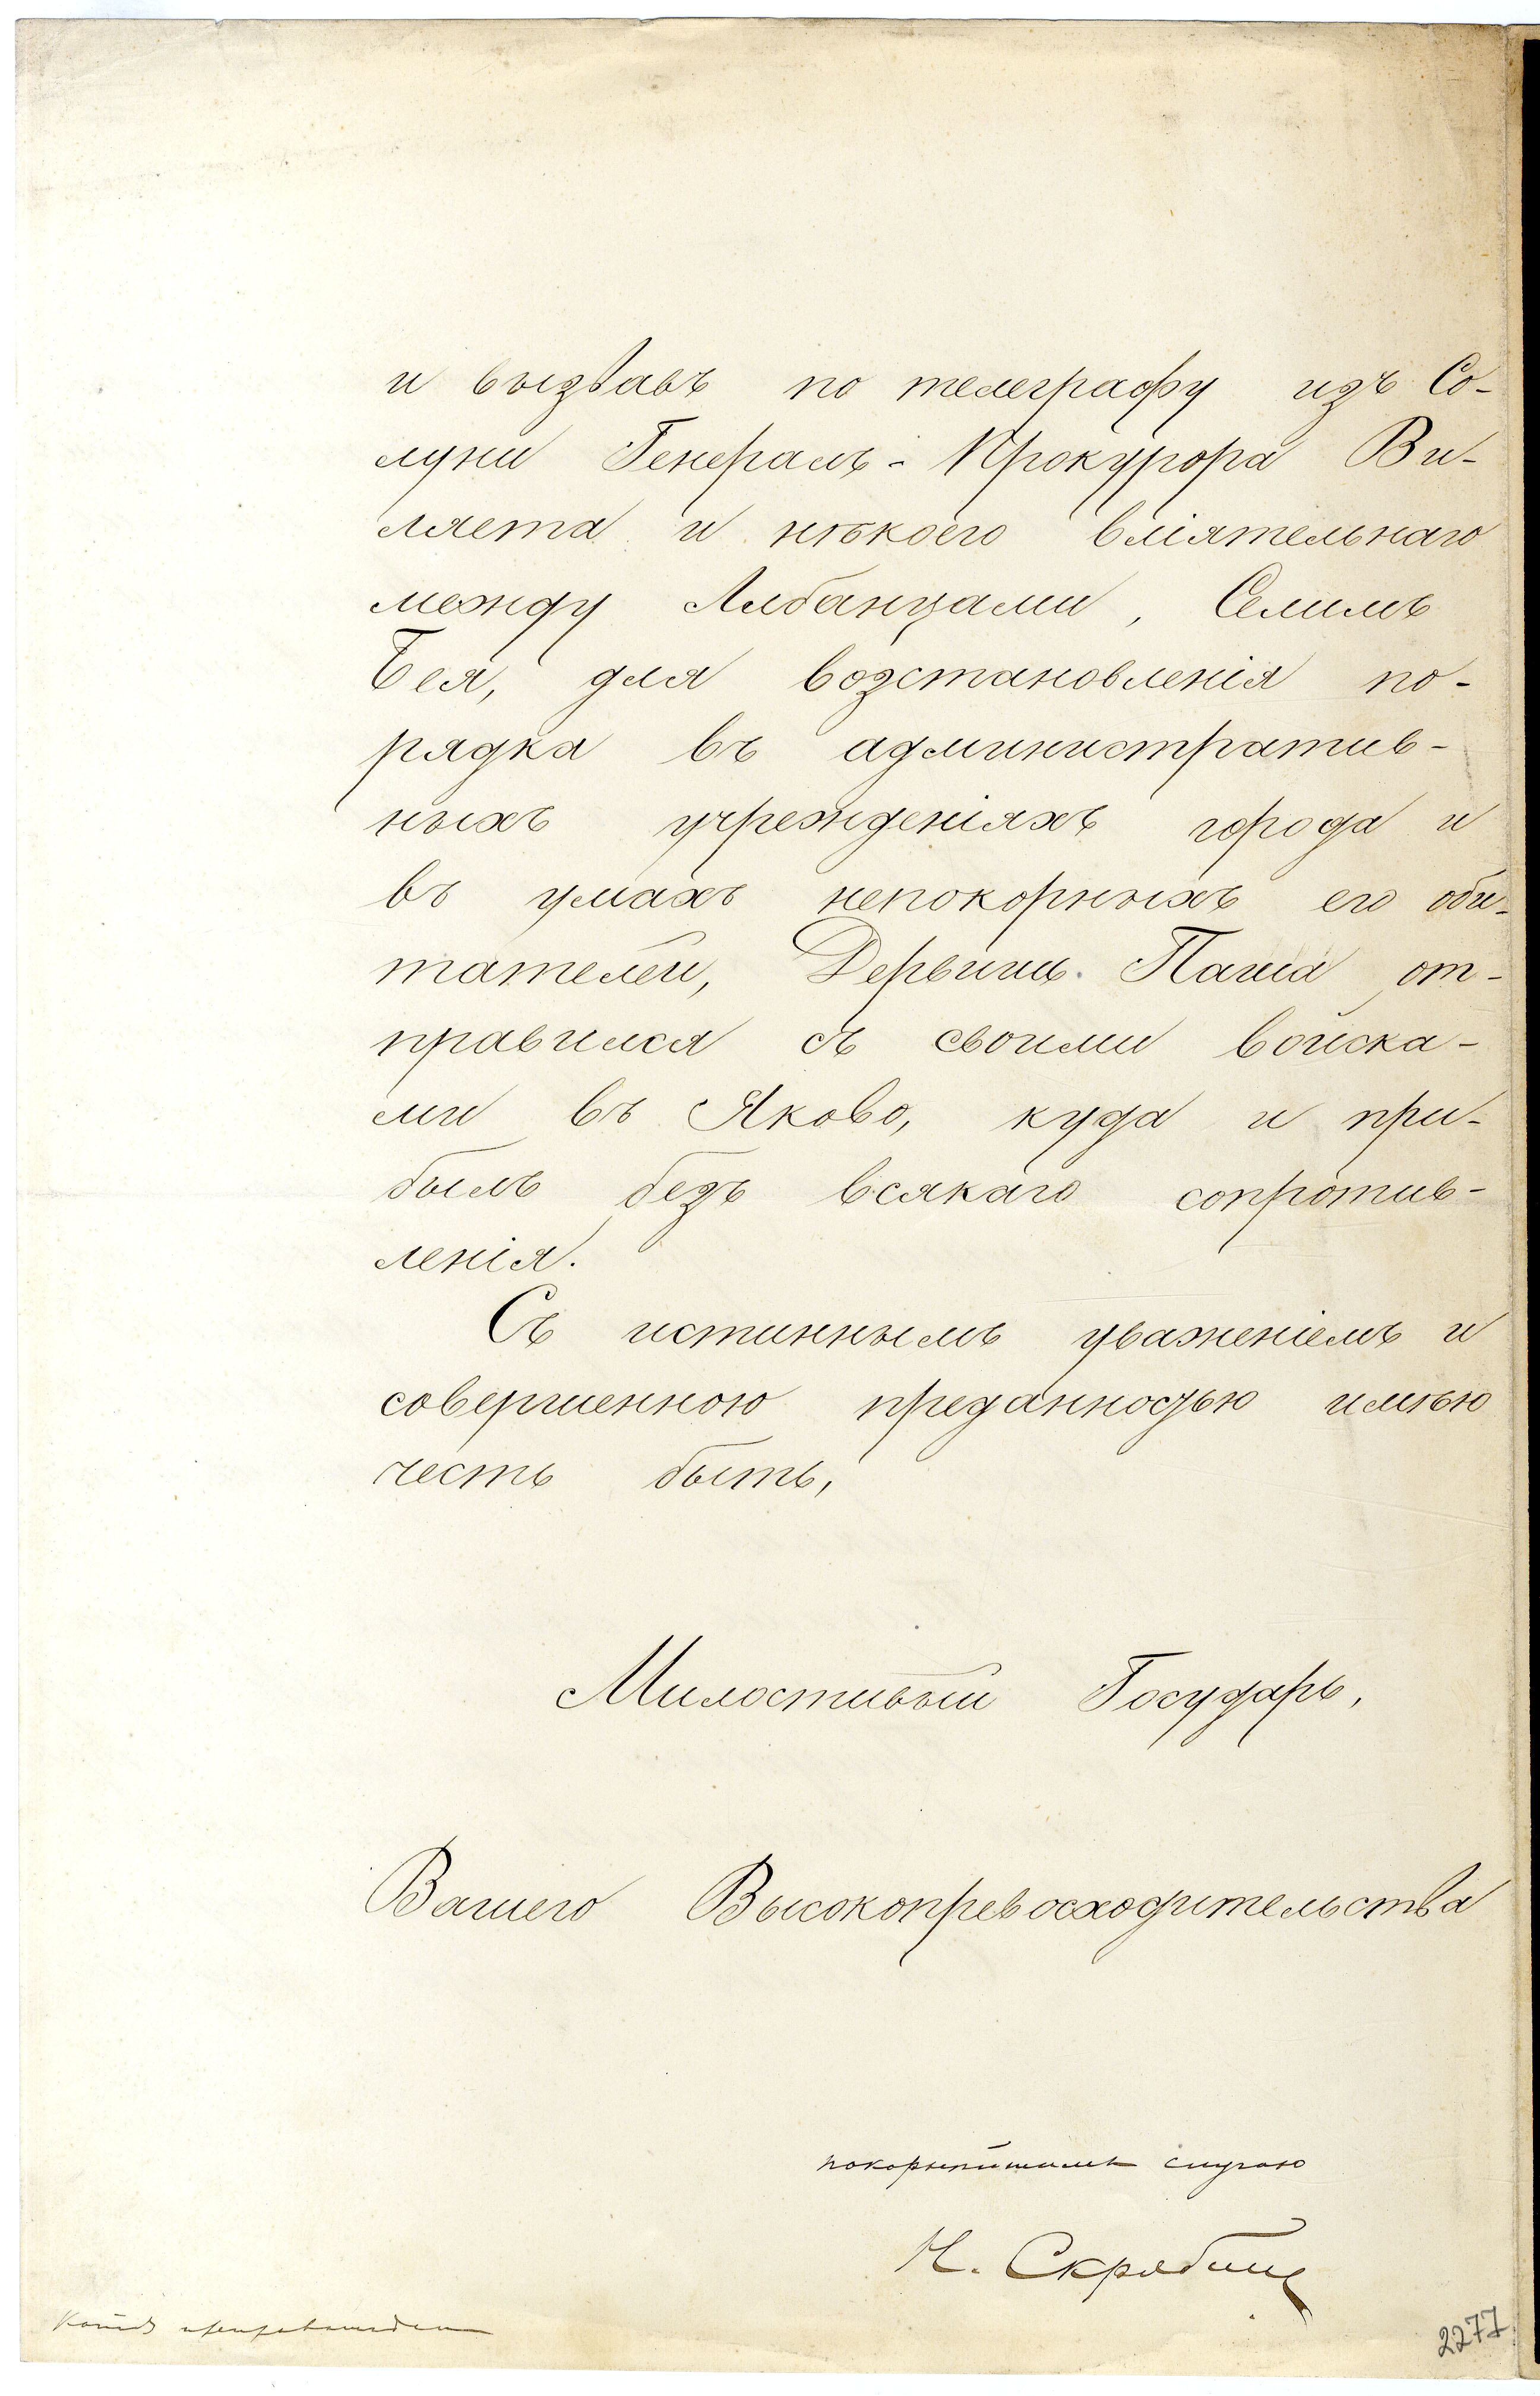 и вызвавъ по телеграфу изъ Со-
луни Генералъ-Прокурора Ви-
ляета и нѣкоего вліятельнаго
между Албанцами, Селимъ
Бея, для возстановленія по-
рядка въ административ-
ныхъ учрежденіяхъ города и
въ умахъ непокорныхъ его оби-
тателей, Дервишъ Паша от-
правился съ своими войска-
ми въ Яково, куда и при-
былъ безъ всякаго сопротив-
ленія.
Съ истиннымъ уваженіемъ и
совершенною преданностью имѣю
честь быть,
Милостивый Государь,
Вашего Высокопревосходительства
покорнѣйшимъ слугою
Н. Скрябинъ
2277